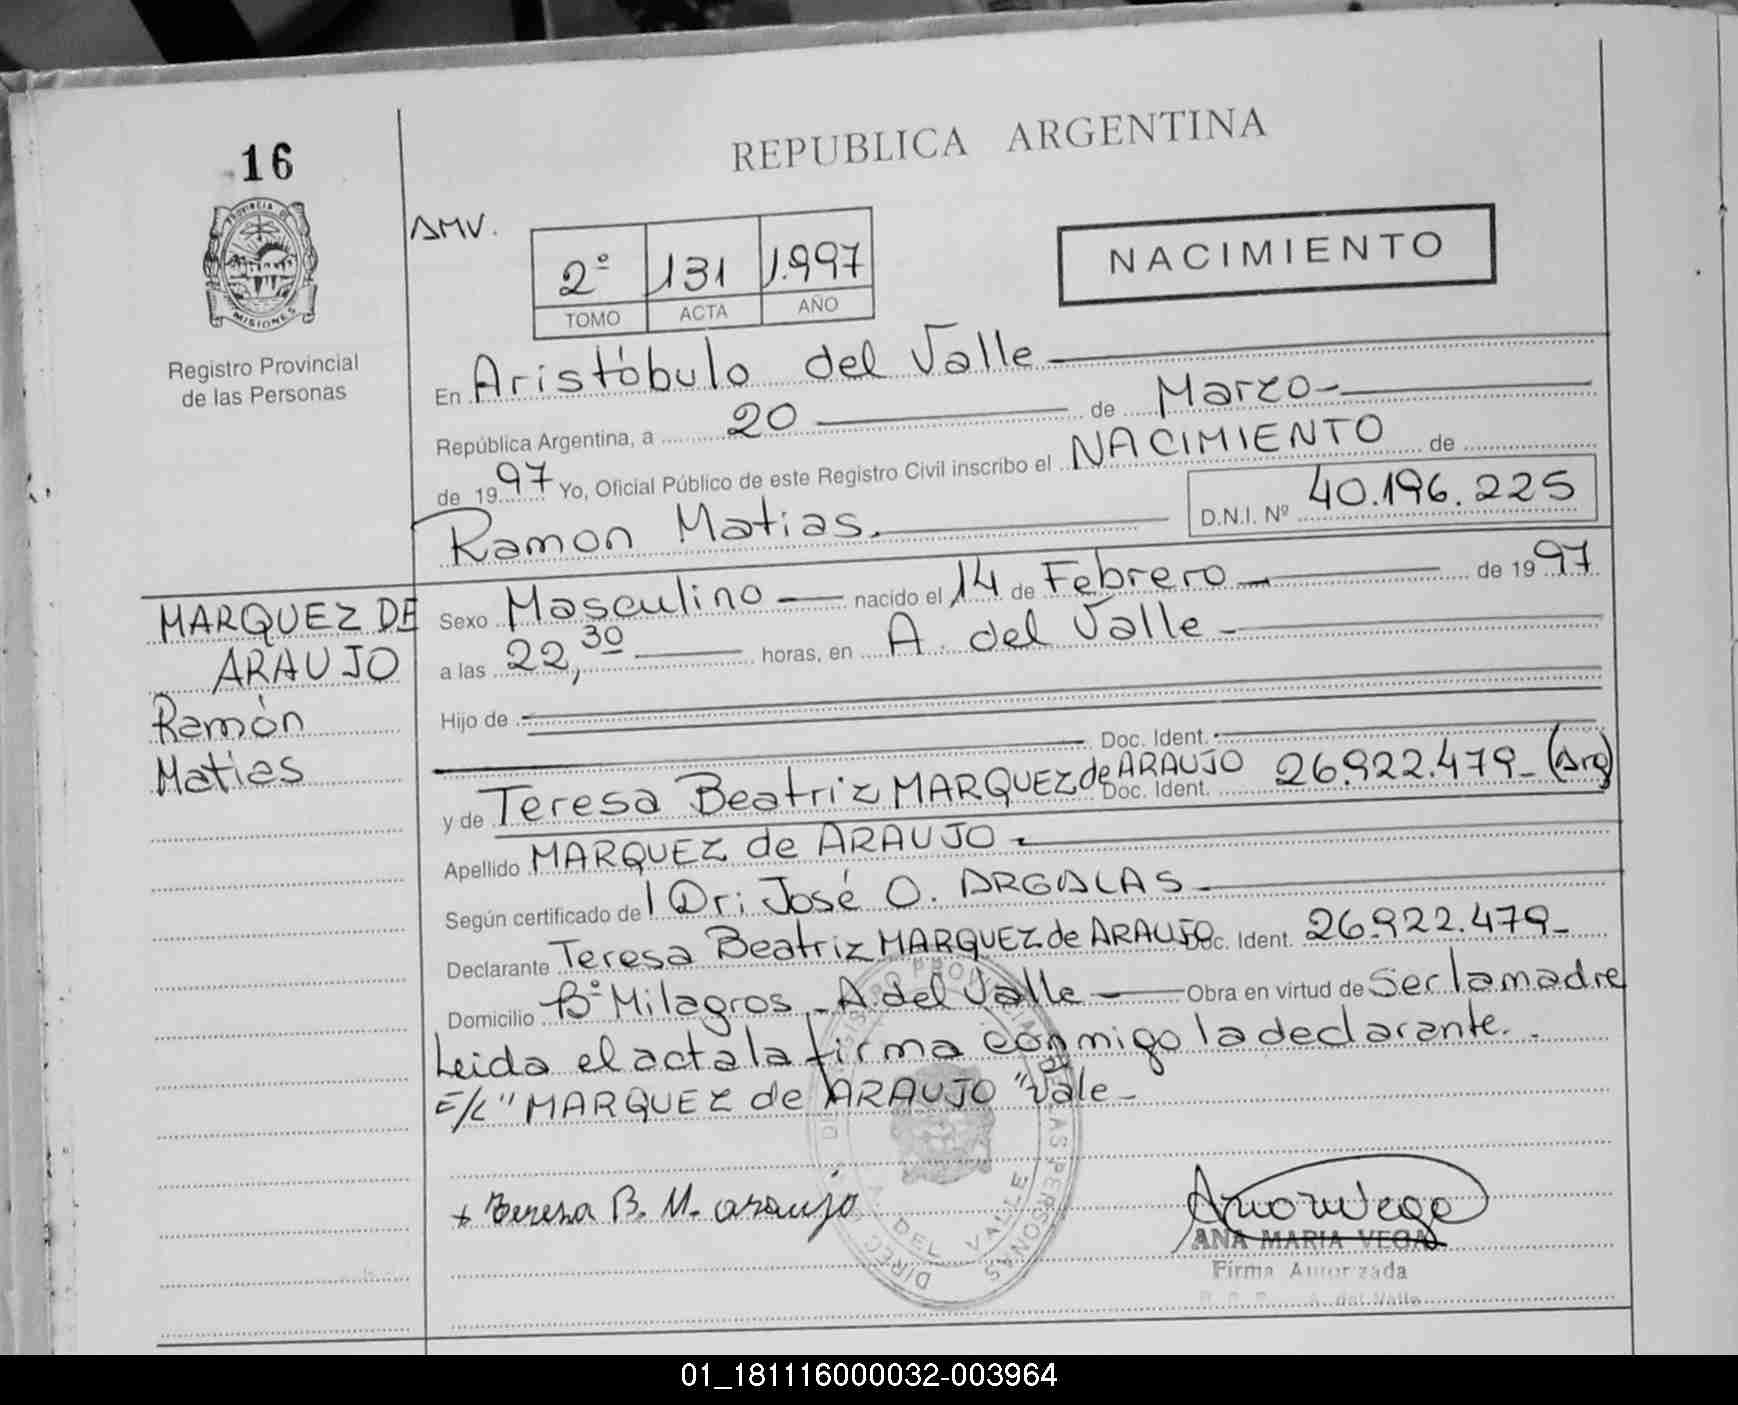 16
REPUBLICA ARGENTINA
PROVINCIA DE
MISIONES
Registro Provincial
de las Personas
AMV.
2º 131 1.997
TOMO ACTA AÑO
NACIMIENTO
En Aristóbulo del Valle
República Argentina, a 20 de Marzo
de 1997 Yo, Oficial Público de este Registro Civil inscribo el NACIMIENTO de
Ramon Matias. D.N.I. Nº 40.196.225
MARQUEZ DE
ARAUJO
Ramón
Matias
Sexo Masculino nacido el 14 de Febrero de 1997
a las 22,30 horas, en A. del Valle
Hijo de
Doc. Ident.
y de Teresa Beatriz MARQUEZ de ARAUJO Doc. Ident. 26.922.479_ (Arg)
Apellido MARQUEZ de ARAUJO
Según certificado del Dr; José O. ARGALAS
Declarante Teresa Beatriz MARQUEZ de ARAUJO Doc. Ident. 26.922.479_
Domicilio Bº Milagros _ A. del Valle Obra en virtud de Ser la madre
Leida el acta la firma conmigo la declarante.
E/L "MARQUEZ de ARAUJO" Vale_
+ Teresa B. M. araujo
A. DEL VALLE
ANA MARIA VEGA
Firma Autorizada
A. del Valle
01_181116000032-003964